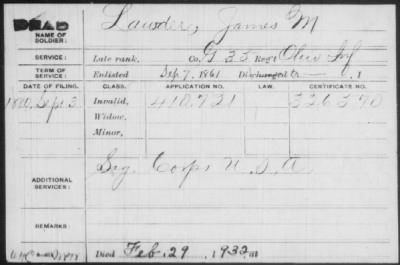 DEAD
NAME OF SOLDIER: Lawder, James M
SERVICE: Late rank, Co. G 35 Reg't Ohio Inf
TERM OF SERVICE: Enlisted Sep. 7, 1861 Discharged
DATE OF FILING. CLASS. APPLICATION NO. LAW. CERTIFICATE NO.
1880, Sept. 3 Invalid, 410,721 326370
Widow,
Minor,
ADDITIONAL SERVICES: Sig. Corps U.S.A
REMARKS:
Died Feb. 29, 1932 at